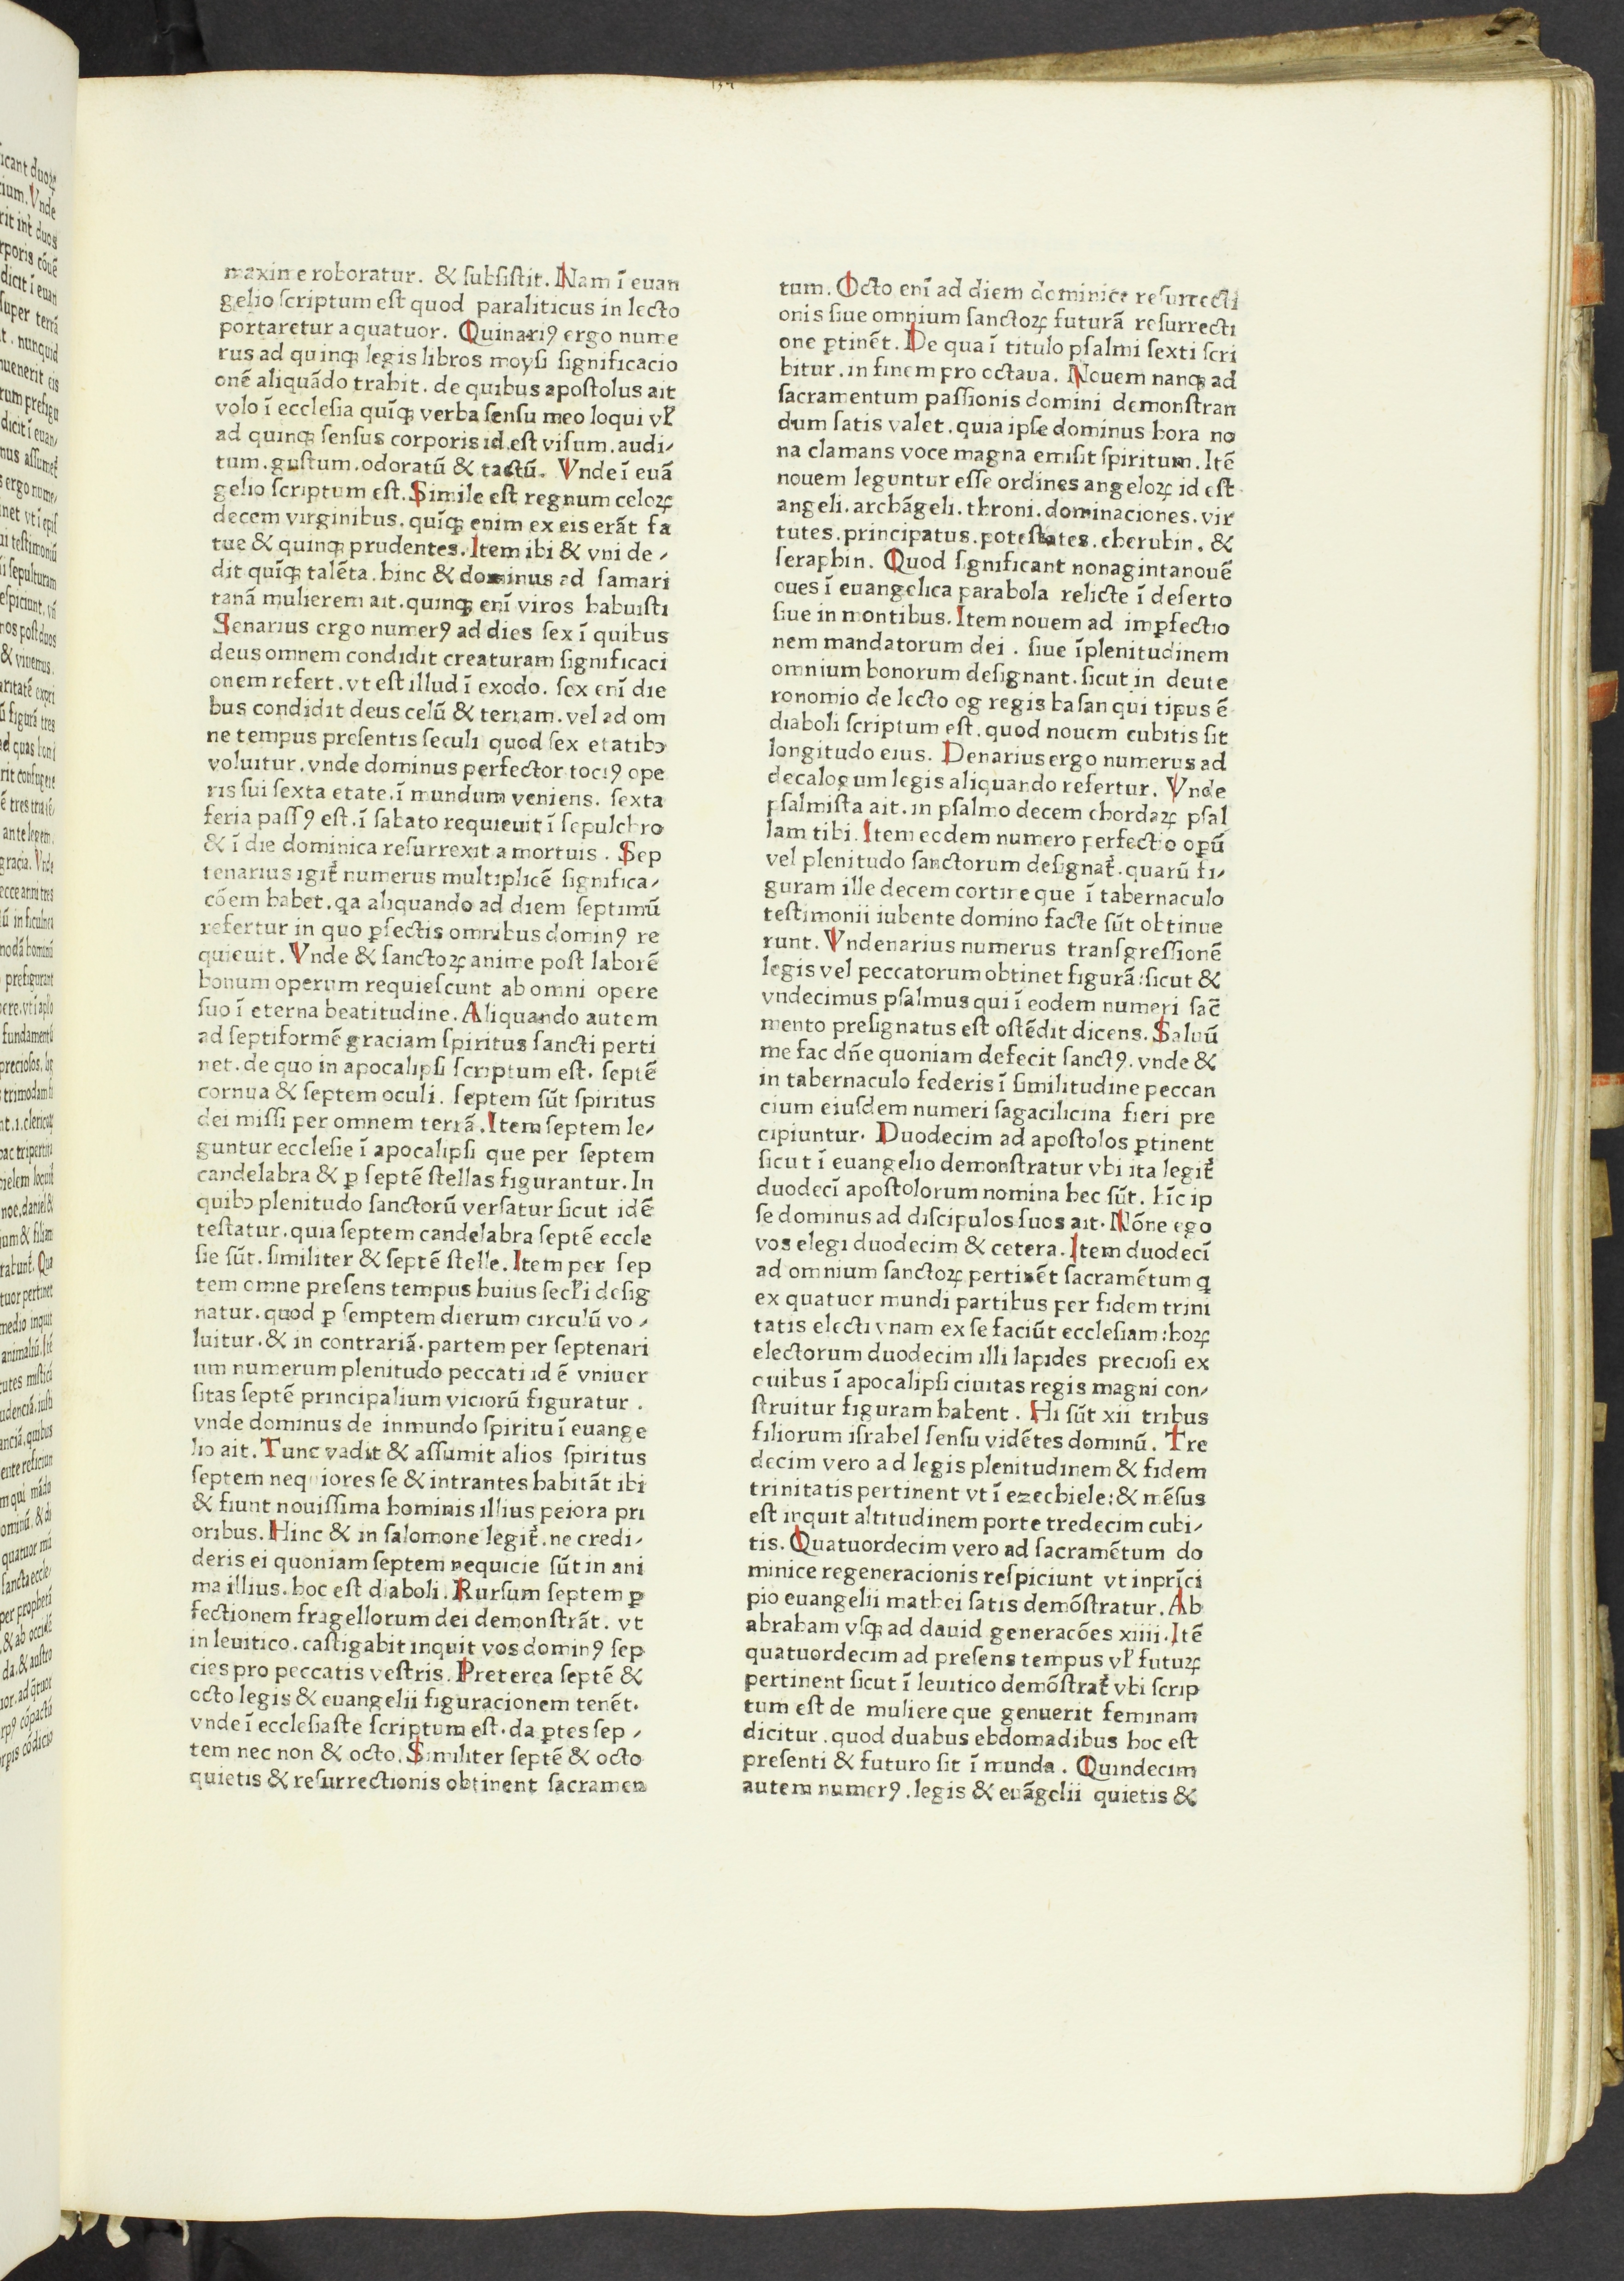 maxime roboratur. & ſubſiſtit. Nam ī euan
gelio ſcriptum eſt quod paraliticus in lecto
portaretur a quatuor. Quinariꝰ ergo nume
rus ad quinqꝫ legis libros moyſi ſignificacio
onē aliquādo trahit. de quibus apoſtolus ait
volo ī eccleſia quīqꝫ verba ſenſu meo loqui vl̕
ad quinqꝫ ſenſus corporis id.eſt viſum.audi⸗
tum.guſtum.odoratū & tactū. Vnde ī euā
gelio ſcriptum eſt.Simile eſt regnum celoꝝ
decem virginibus.quīqꝫ enim ex eis erāt fa
tue & quinqꝫ prudentes.Item ibi & vni de⸗
dit quīqꝫ talēta.hinc & dominus ad ſamari
tanā mulierem ait.quinqꝫ enī viros habuiſti
Senarius ergo numerꝰ ad dies ſex ī quibus
deus omnem condidit creaturam ſignificaci
onem refert.vt eſt illud ī exodo. ſex enī die
bus condidit deus celū & terram.vel ad om
ne tempus preſentis ſeculi quod ſex etatibꝫ
voluitur.vnde dominus perfector tociꝰ ope
ris ſui ſexta etate.ī mundum veniens. ſexta
feria paſſꝰ eſt.ī ſabato requieuit ī ſepulchro
& ī die dominica reſurrexit a mortuis. Sep
tenarius igit᷑ numerus multiplicē ſignifica⸗
cōem habet.qa aliquando ad diem ſeptimū
refertur in quo ꝑfectis omnibus dominꝰ re
quieuit. Vnde & ſanctoꝝ anime poſt laborē
bonum operum requieſcunt ab omni opere
ſuo ī eterna beatitudine. Aliquando autem
ad ſeptiformē graciam ſpiritus ſancti perti
net.de quo in apocalipſi ſcriptum eſt. ſeptē
cornua & ſeptem oculi. ſeptem ſūt ſpiritus
dei miſſi per omnem terrā.Item ſeptem le⸗
guntur eccleſie ī apocalipſi que per ſeptem
candelabra & ꝑ ſeptē ſtellas figurantur. In
quibꝫ plenitudo ſanctorū verſatur ſicut idē
teſtatur.quia ſeptem candelabra ſeptē eccle
ſie ſūt.ſimiliter & ſeptē ſtelle.Item per ſep
tem omne preſens tempus huius ſecl̕i deſig
natur.quod ꝑ ſemptem dierum circulū vo⸗
luitur.& in contrariā.partem per ſeptenari
um numerum plenitudo peccati id ē vniuer
ſitas ſeptē principalium viciorū figuratur.
vnde dominus de inmundo ſpiritu ī euange
lio ait. Tunc vadit & aſſumit alios ſpiritus
ſeptem nequiores ſe & intrantes habitāt ibi
& fiunt nouiſſima hominis illius peiora pri
oribus. Hinc & in ſalomone legit᷑.ne credi⸗
deris ei quoniam ſeptem nequicie ſūt in ani
ma illius.hoc eſt diaboli. Rurſum ſeptem ꝑ
fectionem fragellorum dei demonſtrāt. vt
in leuitico.caſtigabit inquit vos dominꝰ ſep
cies pro peccatis veſtris. Preterea ſeptē &
octo legis & euangelii figuracionem tenēt.
vnde ī eccleſiaſte ſcriptum eſt.da ꝑtes ſep⸗
tem nec non & octo. Similiter ſeptē & octo
quietis & reſurrectionis obtinent ſacramen
tum. Octo enī ad diem dominice reſurrecti
onis ſiue omnium ſanctoꝝ futurā reſurrecti
one ꝑtinēt. De qua ī titulo pſalmi ſexti ſcri
bitur.in finem pro octaua. Nouem nanqꝫ ad
ſacramentum paſſionis domini demonſtran
dum ſatis valet.quia ipſe dominus hora no
na clamans voce magna emiſit ſpiritum. Itē
nouem leguntur eſſe ordines angeloꝝ id eſt
angeli.archāgeli.throni.dominaciones.vir
tutes.principatus.poteſtates.cherubin.&
ſeraphin. Quod ſignificant nonagintanouē
oues ī euangelica parabola relicte ī deſerto
ſiue in montibus.Item nouem ad imꝑfectio
nem mandatorum dei. ſiue īplenitudinem
omnium bonorum deſignant.ſicut in deute
ronomio de lecto og regis baſan qui tipus ē
diaboli ſcriptum eſt.quod nouem cubitis ſit
longitudo eius. Denarius ergo numerus ad
decalogum legis aliquando refertur. Vnde
pſalmiſta ait.in pſalmo decem chordaꝝ pſal
lam tibi.Item eodem numero perfectio opū
vel plenitudo ſanctorum deſignat᷑.quarū fi⸗
guram ille decem cortine que ī tabernaculo
teſtimonii iubente domino facte ſūt obtinue
runt. Vndenarius numerus tranſgreſſionē
legis vel peccatorum obtinet figurā:ſicut &
vndecimus pſalmus qui ī eodem numeri ſac̄
mento preſignatus eſt oſtēdit dicens. Saluū
me fac dn̄e quoniam defecit ſanctꝰ.vnde &
in tabernaculo federis ī ſimilitudine peccan
cium eiuſdem numeri ſagacilicina fieri pre
cipiuntur. Duodecim ad apoſtolos ꝑtinent
ſicut ī euangelio demonſtratur vbi ita legit᷑
duodecī apoſtolorum nomina hec ſūt. hīc ip
ſe dominus ad diſcipulos ſuos ait. Nōne ego
vos elegi duodecim & cetera.Item duodecī
ad omnium ſanctoꝝ pertinēt ſacramētum q̄
ex quatuor mundi partibus per fidem trini
tatis electi vnam ex ſe faciūt eccleſiam:hoꝝ
electorum duodecim illi lapides precioſi ex
quibus ī apocalipſi ciuitas regis magni con⸗
ſtruitur figuram habent. Hi ſūt xii tribus
filiorum iſrahel ſenſu vidētes dominū. Tre
decim vero ad legis plenitudinem & fidem
trinitatis pertinent vt ī ezechiele:& mēſus
eſt inquit altitudinem porte tredecim cubi⸗
tis. Quatuordecim vero ad ſacramētum do
minice regeneracionis reſpiciunt vt inprīci
pio euangelii mathei ſatis demōſtratur.Ab
abraham vſqꝫ ad dauid generacōes xiiii.Itē
quatuordecim ad preſens tempus vl̕ futuꝝ
pertinent ſicut ī leuitico demōſtrat᷑ vbi ſcrip
tum eſt de muliere que genuerit feminam
dicitur.quod duabus ebdomadibus hoc eſt
preſenti & futuro ſit ī munda. Quindecim
autem numerꝰ.legis & euāgelii quietis &